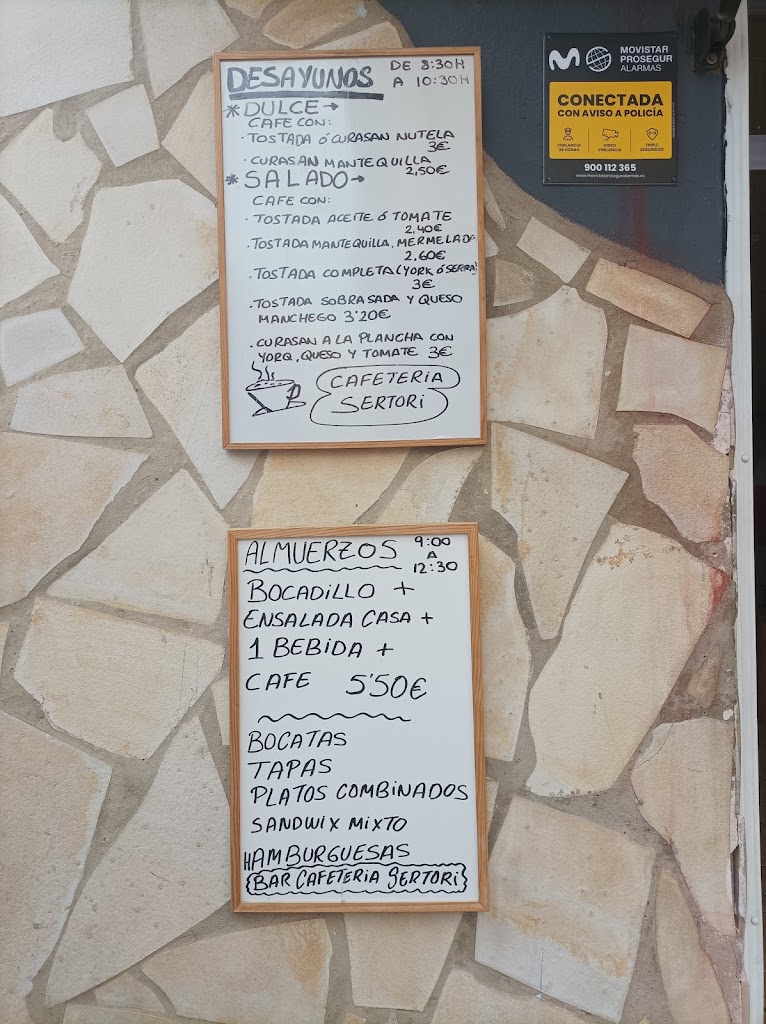 DESAYUNOS DE 8:30H
A 10:30H
* DULCE →
CAFE CON:
· TOSTADA Ó CURASAN NUTELA
3€
· CURASAN MANTEQUILLA
2,50€
* SALADO →
CAFE CON:
· TOSTADA ACEITE Ó TOMATE
2.40€
· TOSTADA MANTEQUILLA, MERMELADA
2.60€
· TOSTADA COMPLETA (YORK, Ó SERRA)
3€
· TOSTADA SOBRASADA Y QUESO
MANCHEGO 3'20€
· CURASAN A LA PLANCHA CON
YORQ, QUESO Y TOMATE 3€
CAFETERIA
SERTORI
ALMUERZOS 9:00
A
12:30
BOCADILLO +
ENSALADA CASA +
1 BEBIDA +
CAFE 5'50€
BOCATAS
TAPAS
PLATOS COMBINADOS
SANDWIX MIXTO
HAMBURGUESAS
BAR CAFETERIA SERTORI
MOVISTAR
PROSEGUR
ALARMAS
CONECTADA
CON AVISO A POLICÍA
VIGILANCIA
24 HORAS
VIDEO
VIGILANCIA
TRIPLE
SEGURIDAD
900 112 365
www.movistarproseguralarmas.es